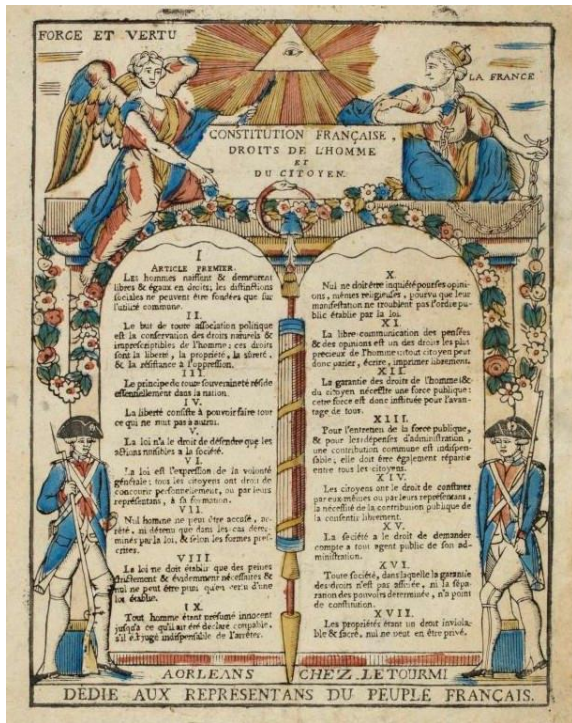 FORCE ET VERTU
LA FRANCE
CONSTITUTION FRANÇAISE,
DROITS DE L'HOMME
ET
DU CITOYEN.
I
ARTICLE PREMIER.
Les hommes naissent & demeurent
libres & égaux en droits; les distinctions
sociales ne peuvent être fondées que sur
l'utilité commune.
II.
Le but de toute association politique
est la conservation des droits naturels &
imprescriptibles de l'homme; ces droits
sont la liberté, la propriété, la sûreté,
& la résistance à l'oppression.
III.
Le principe de toute souveraineté réside
essentiellement dans la nation.
IV.
La liberté consiste à pouvoir faire tout
ce qui ne nuit pas à autrui.
V.
La loi n'a le droit de défendre que les
actions nuisibles à la société.
VI.
La loi est l'expression de la volonté
générale; tous les citoyens ont droit de
concourir personnellement, ou par leurs
représentans, à sa formation.
VII.
Nul homme ne peut être accusé, ar-
rêté, ni détenu que dans les cas déter-
minés par la loi, & selon les formes pres-
crites.
VIII.
La loi ne doit établir que des peines
strictement & évidemment nécessaires &
nul ne peut être puni qu'en vertu d'une
loi établie.
IX.
Tout homme étant présumé innocent
jusqu'a ce qu'il ait été déclaré coupable,
s'il est jugé indispensable de l'arrêter.
X.
Nul ne doit être inquiété pour ses opini-
ons, mêmes religieuses, pourvu que leur
manifestation ne troublent pas l'ordre pu-
blic établie par la loi.
XI.
La libre communication des pensées
& des opinions est un des droits les plus
précieux de l'homme: tout citoyen peut
donc parler, écrire, imprimer librement.
XII.
La garantie des droits de l'homme &
du citoyen nécessite une force publique:
cette force est donc instituée pour l'avan-
tage de tous.
XIII.
Pour l'entretien de la force publique,
& pour les dépenses d'administration,
une contribution commune est indispen-
sable; elle doit être également répartie
entre tous les citoyens.
XIV.
Les citoyens ont le droit de constater
par eux-mêmes ou par leurs représentans,
la nécessité de la contribution publique de
la consentir librement.
XV.
La société a le droit de demander
compte a tout agent public de son ad-
ministration.
XVI.
Toute société, dans laquelle la garantie
des droits n'est pas assurée, ni la sépa-
ration des pouvoirs déterminée, n'a point
de constitution.
XVII.
Les propriétés étant un droit inviola-
ble & sacré, nul ne peut en être privé.
A ORLEANS CHEZ LETOURMI
DÉDIÉ AUX REPRÉSENTANS DU PEUPLE FRANÇAIS.